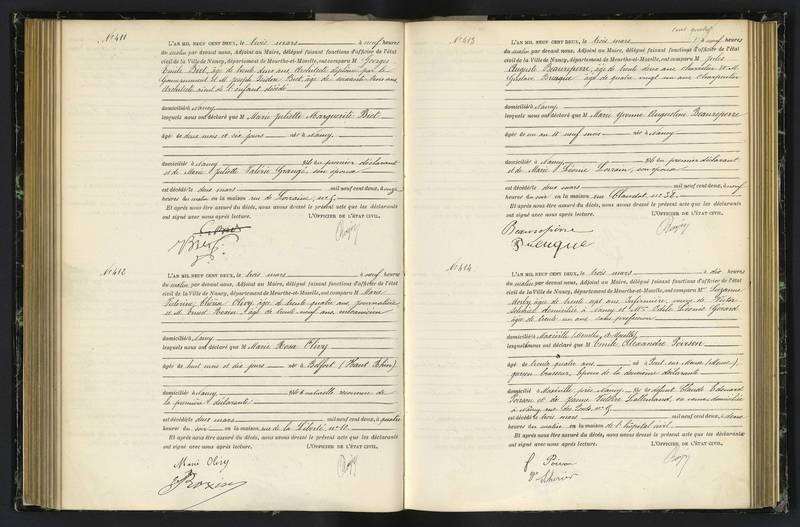 N° 411
L'AN MIL NEUF CENT DEUX, le trois mars à neuf heures
du matin par devant nous, Adjoint au Maire, délégué faisant fonctions d'officier de l'état
civil de la Ville de Nancy, département de Meurthe-et-Moselle, ont comparu M Georges
Emile Biet, âgé de trente deux ans, Architecte diplômé par le
Gouvernement et M. Joseph Biet, âgé de soixante trois ans
Architecte aïeul de l'enfant décédé
domiciliés à Nancy
lesquels nous ont déclaré que M Marie Juliette Marguerite Biet
âgée de deux mois et dix jours née à Nancy
domiciliée à Nancy fille du premier déclarant
et de Marie Juliette Valérie Grangé, son épouse
est décédée le deux mars mil neuf cent deux, à
heures du matin en la maison rue de Lorraine, n°
Et après nous être assuré du décès, nous avons dressé le présent acte que les déclarants
ont signé avec nous après lecture. L'OFFICIER DE L'ÉTAT CIVIL.
N° 412
L'AN MIL NEUF CENT DEUX, le trois mars à neuf heures
du matin par devant nous, Adjoint au Maire, délégué faisant fonctions d'officier de l'état
civil de la Ville de Nancy, département de Meurthe-et-Moselle, ont comparu M Marie
Olivry, âgée de trente quatre ans, journalière
et M. Ernest Roxin, âgé de trente neuf ans, mécanicien
domiciliés à Nancy
lesquels nous ont déclaré que M Marie Rosa Olivry
âgée de huit mois et dix jours née à Belfort (Haut Rhin)
domiciliée à Nancy fille naturelle reconnue de
la première déclarante
est décédée le deux mars mil neuf cent deux, à quatre
heures du soir en la maison rue de la Liberté, n° 11.
Et après nous être assuré du décès, nous avons dressé le présent acte que les déclarants
ont signé avec nous après lecture. L'OFFICIER DE L'ÉTAT CIVIL.
Marie Olivry
Roxin
N° 413
L'AN MIL NEUF CENT DEUX, le trois mars à neuf heures
du matin par devant nous, Adjoint au Maire, délégué faisant fonctions d'officier de l'état
civil de la Ville de Nancy, département de Meurthe-et-Moselle, ont comparu M Jules
Auguste Beaurepierre, âgé de trente deux ans, et M.
âgé de quatre vingt un ans charpentier
domiciliés à Nancy
lesquels nous ont déclaré que M Marie Yvonne Augustine Beaurepierre
âgée de un an et neuf mois née à Nancy
domiciliée à Nancy fille du premier déclarant
et de Marie Léonie Lorrain, son épouse
est décédée le deux mars mil neuf cent deux, à neuf
heures du soir en la maison rue Claudot, n° 38
Et après nous être assuré du décès, nous avons dressé le présent acte que les déclarants
ont signé avec nous après lecture. L'OFFICIER DE L'ÉTAT CIVIL.
Beaurepierre
N° 414
L'AN MIL NEUF CENT DEUX, le trois mars à dix heures
du matin par devant nous, Adjoint au Maire, délégué faisant fonctions d'officier de l'état
civil de la Ville de Nancy, département de Meurthe-et-Moselle, ont comparu M Suzanne
âgée de trente sept ans, Infirmière, veuve de Victor
domiciliée à Nancy et Odile Léonie Gérard
âgée de trente un ans sans profession
domiciliée à Maxéville (Meurthe et Moselle)
lesquels nous ont déclaré que M Emile Alexandre Poirson
âgé de trente quatre ans né à Pont sur Meuse (Meuse)
garçon brasseur, époux de la deuxième déclarante
domicilié à Maxéville près Nancy fils de défunt Claude Edouard
Poirson et de Jeanne Lallemand, sa veuve, domiciliée
à Nancy
est décédé le trois mars mil neuf cent deux, à deux
heures du matin en la maison de l'hôpital civil
Et après nous être assuré du décès, nous avons dressé le présent acte que les déclarants
ont signé avec nous après lecture. L'OFFICIER DE L'ÉTAT CIVIL.
Poirson